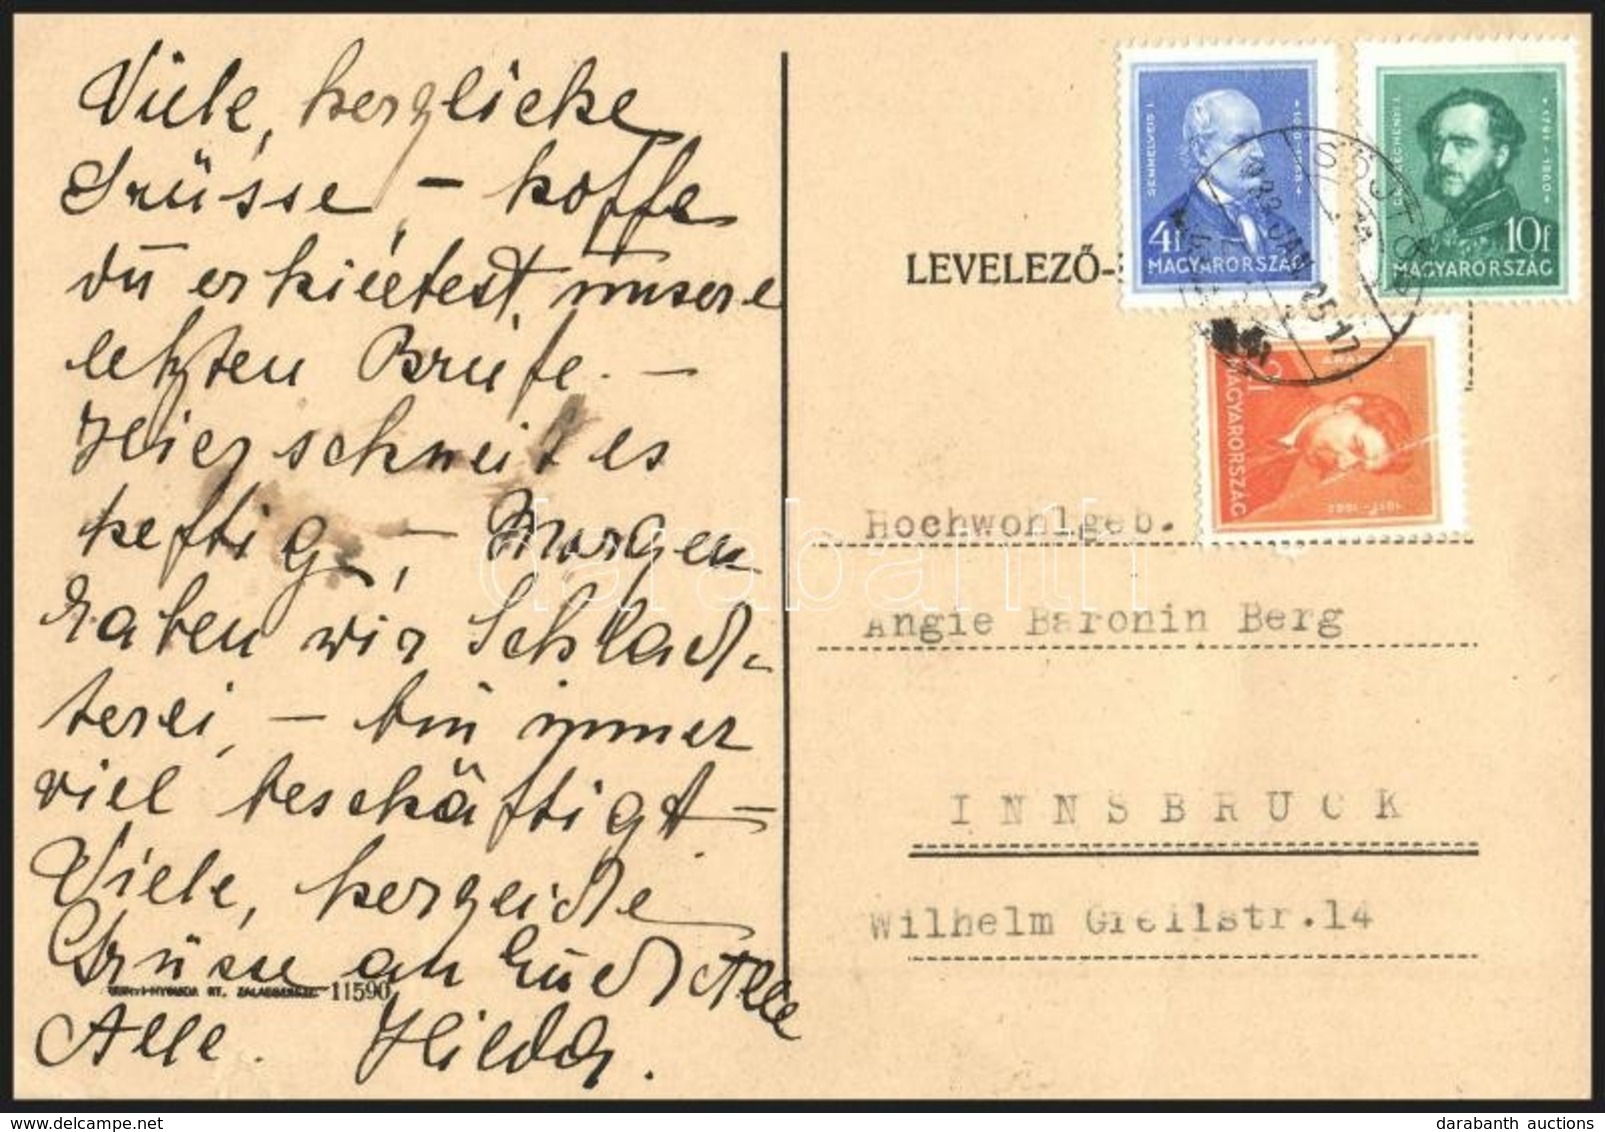 Viele, herzliche
Grüsse, – hoffe
du erhieltest unsere
letzten Briefe. –
Hier schneit es
heftig, – Morgen
haben wir Schlach-
terei, – bin immer
viel beschäftigt –
Viele, herzliche
Grüsse an Euch Alle
Alle. Hilda.
RT. 11590
LEVELEZŐ-
SEMMELWEIS I.
4f
MAGYARORSZÁG
GR. SZÉCHENYI I.
1791-1860
10f
MAGYARORSZÁG
ARANY J.
MAGYARORSZÁG
1817-1882
SÖJTÖR
JAN 25 17
Hochwohlgeb.
Angie Baronin Berg
INNSBRUCK
Wilhelm Greilstr.14
darabanth
darabanth auctions